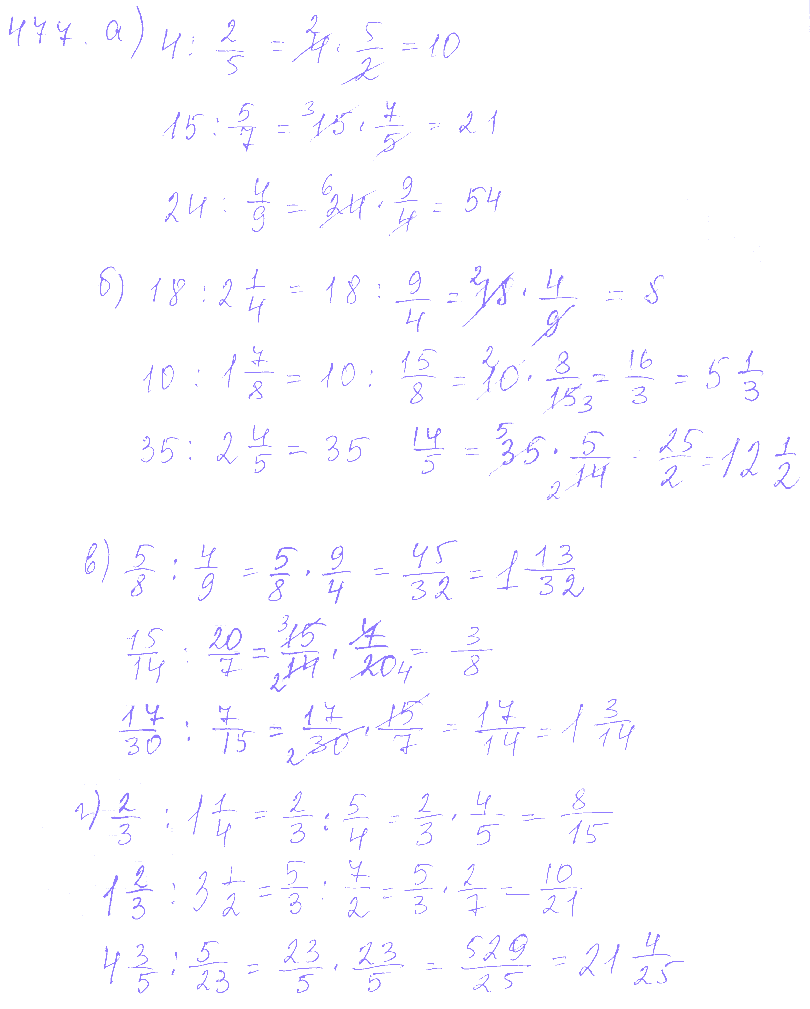 477. а) 4 : 2/5 = 4 · 5/2 = 10
15 : 5/7 = 15 · 7/5 = 21
24 : 4/9 = 24 · 9/4 = 54
б) 18 : 2 1/4 = 18 : 9/4 = 18 · 4/9 = 8
10 : 1 7/8 = 10 : 15/8 = 10 · 8/15 = 16/3 = 5 1/3
35 : 2 4/5 = 35 14/5 = 35 · 5/14 = 25/2 = 12 1/2
в) 5/8 : 4/9 = 5/8 · 9/4 = 45/32 = 1 13/32
15/14 : 20/7 = 15/14 · 7/20 = 3/8
17/30 : 7/15 = 17/30 · 15/7 = 17/14 = 1 3/14
г) 2/3 : 1 1/4 = 2/3 : 5/4 = 2/3 · 4/5 = 8/15
1 2/3 : 3 1/2 = 5/3 : 7/2 = 5/3 · 2/7 = 10/21
4 3/5 : 5/23 = 23/5 · 23/5 = 529/25 = 21 4/25